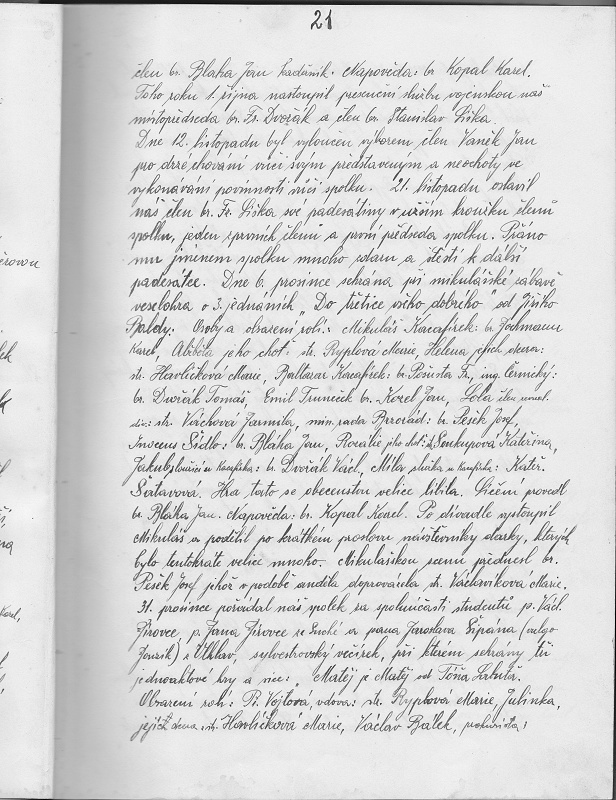 21
člen br. Blaha Jan kadeřník. Napověda: br. Kopal Karel.
Toho roku 1. října nastoupil presenční službu vojenskou náš
místopředseda br. Fr. Dvořák a člen br. Stanislav Liška.
Dne 12. listopadu byl vyloučen výborem člen Vaněk Jan
pro drzé chování vůči svým představeným a neochoty ve
vykonávání povinností vůči spolku. 21. listopadu oslavil
náš člen br. Fr. Liška své padesátiny v užším kroužku členů
spolku, jeden z prvních členů a první předseda spolku. Přáno
mu jménem spolku mnoho zdaru a štěstí k další
padesátce. Dne 6. prosince sehrána při mikulášské zábavě
veselohra o 3. jednáních „Do třetice všeho dobrého" od Jiřího
Baldy. Osoby a obsazení rolí: Mikuláš Karafírek: br. Zochmann
Karel, Alžběta jeho choť: str. Ryplová Marie, Helena jejich dcera:
str. Havlíčková Marie, Baltazar Karafírek: br. Fr., ing. Černický:
br. Dvořák Tomáš, Emil Truneček br. Kozel Jan, Lola člen
div.: str. Váchová Jarmila, min. rada br. Pešek Josef,
Inocenc Šídlo: br. Bláha Jan, Rozálie jeho choť: str. Soukupová Kateřina,
Jakub sloužící u Karafírka: br. Dvořák Václ., Míla služka u Karafírka: Kateř.
Šatavová. Hra tato se obecenstvu velice líbila. Líčení provedl
br. Bláha Jan. Napověda: br. Kopal Karel. Po divadle vystoupil
Mikuláš a podělil po krátkém proslovu návštěvníky dárky, kterých
bylo tentokráte velice mnoho. Mikulášskou scenu přednesl br.
Pešek Josef, jehož v podobě anděla doprovázela str. Václavíková Marie.
31. prosince pořádal náš spolek za spoluúčasti studentů p. Václ.
Jírovce, p. Jana Jírovce ze Suché a pana Jaroslava Šípána (vulgo
z Vlhlav, sylvestrovský večírek, při kterém sehrány tři
jednoaktové hry a sice: „Matěj je Matěj od
Obsazení rolí: B. Vojtová, vdova: str. Ryplová Marie, Julinka,
její dcera: str. Havlíčková Marie, Václav Bálek, prokurista: